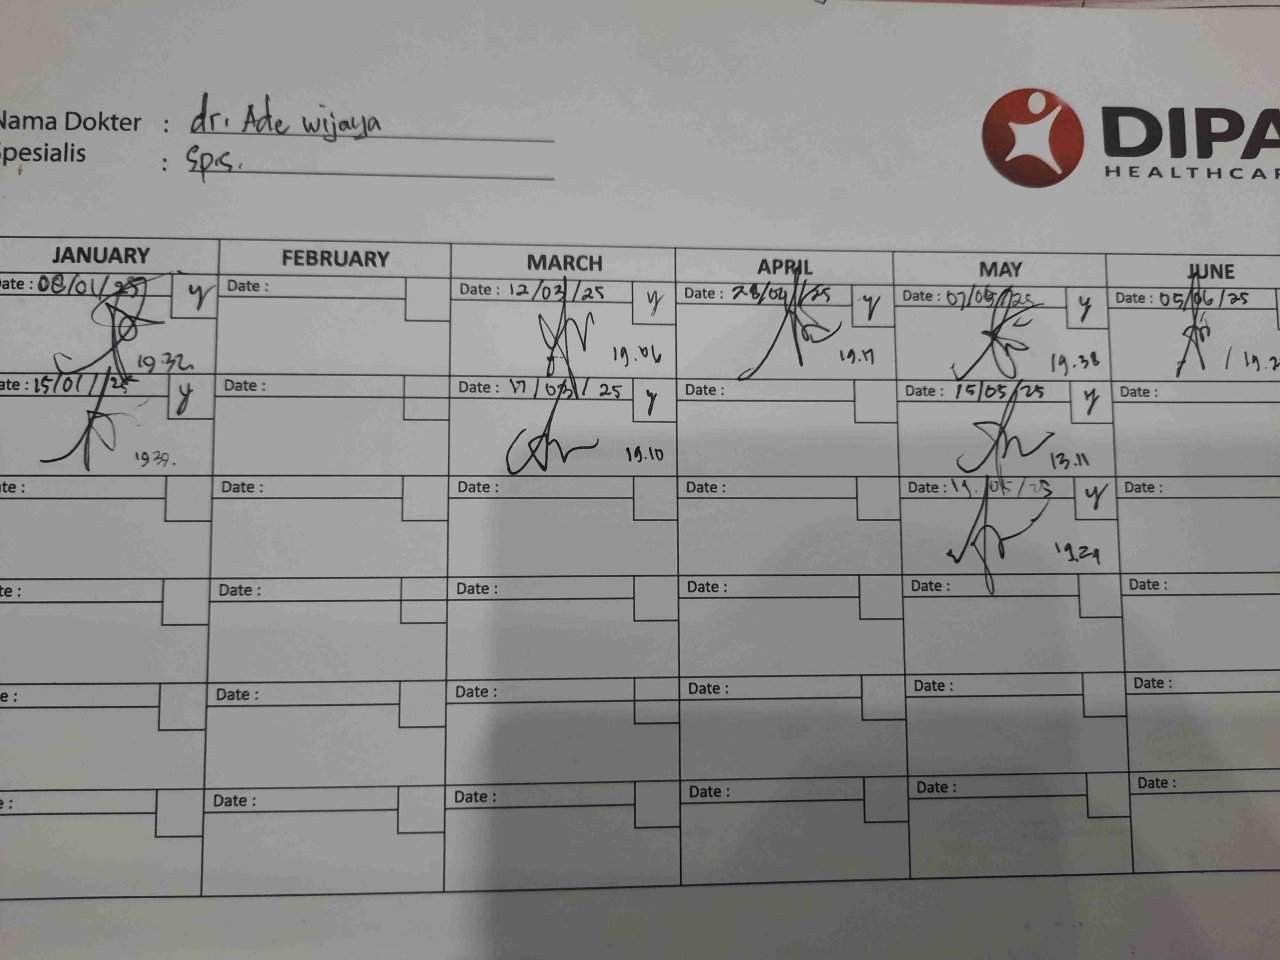 Nama Dokter : dr. Ade Wijaya
Spesialis : Sp.S.
DIPA
HEALTHCAR
JANUARY FEBRUARY MARCH APRIL MAY JUNE
Date : 08/01/25 y Date : Date : 12/03/25 y Date : y Date : 07/05/25 y Date : 05/06/25
19.32. 19.06 19.17 19.38 / 19.2
Date : 15/01/25 y Date : Date : 17/03/25 y Date : Date : 15/05/25 y Date :
19.10 13.11
Date : Date : Date : Date : Date : y Date :
Date : Date : Date : Date : Date : Date :
Date : Date : Date : Date : Date : Date :
Date : Date : Date : Date : Date : Date :